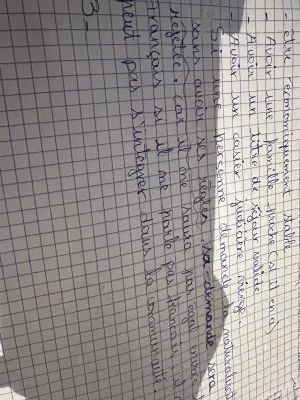 - être économiquement stable
- Avoir une famille proche (s'il en a)
- Avoir un titre de séjour valide
- Avoir un casier judiciaire vierge.
Si une personne demande la naturalisat
sans avoir ses règles, sa demande sera
rejetée, car il ne saura pas
Français si il ne parle pas français, il
peut pas s'intégrer dans la communauté
3-